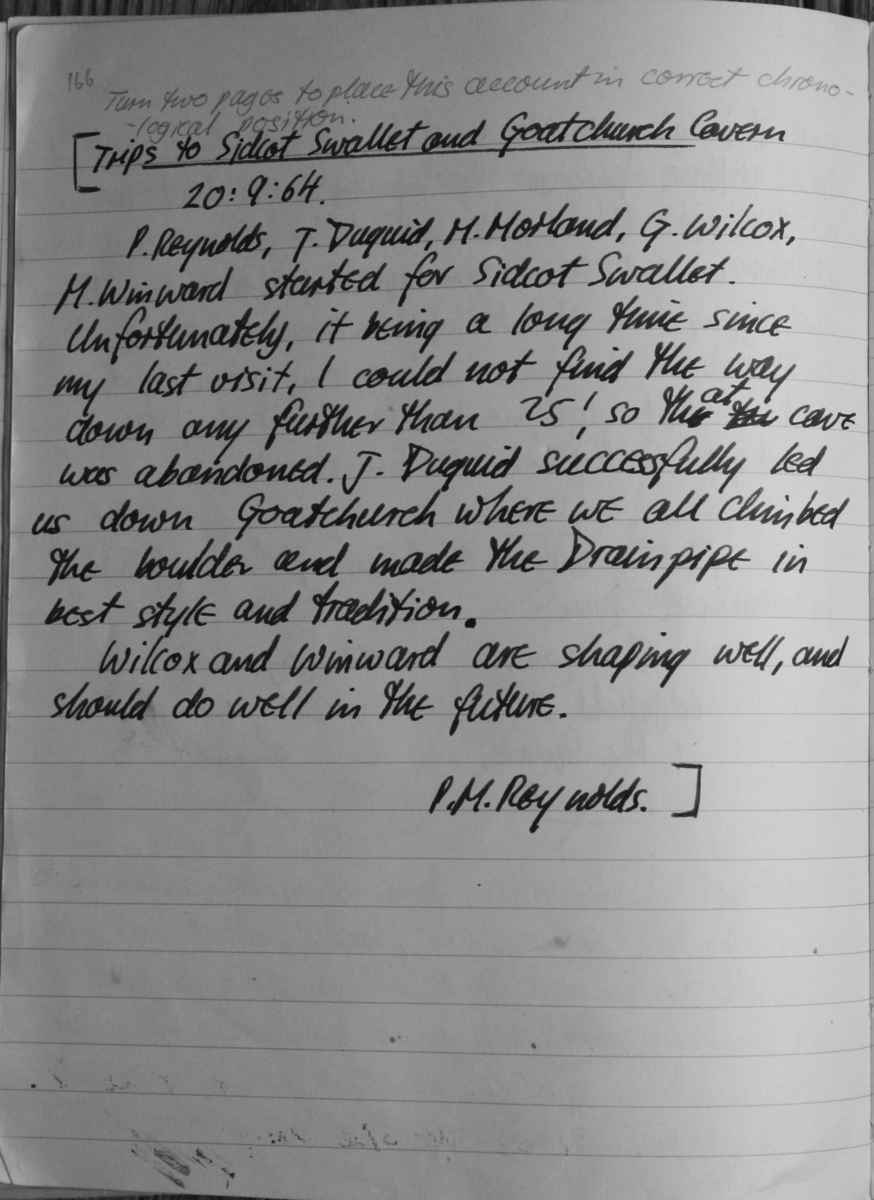 166
Turn two pages to place this account in correct chrono-
-logical position.
[Trips to Sidcot Swallet and Goatchurch Cavern
20:9:64.
P. Reynolds, T. Duguid, M. Morland, G. Wilcox,
M. Winward started for Sidcot Swallet.
Unfortunately, it being a long time since
my last visit, I could not find the way
down any further than 25', so that cave
was abandoned. J. Duguid successfully led
us down Goatchurch where we all climbed
the boulder and made the Drainpipe in
best style and tradition.
Wilcox and Winward are shaping well, and
should do well in the future.
P.M. Reynolds.]